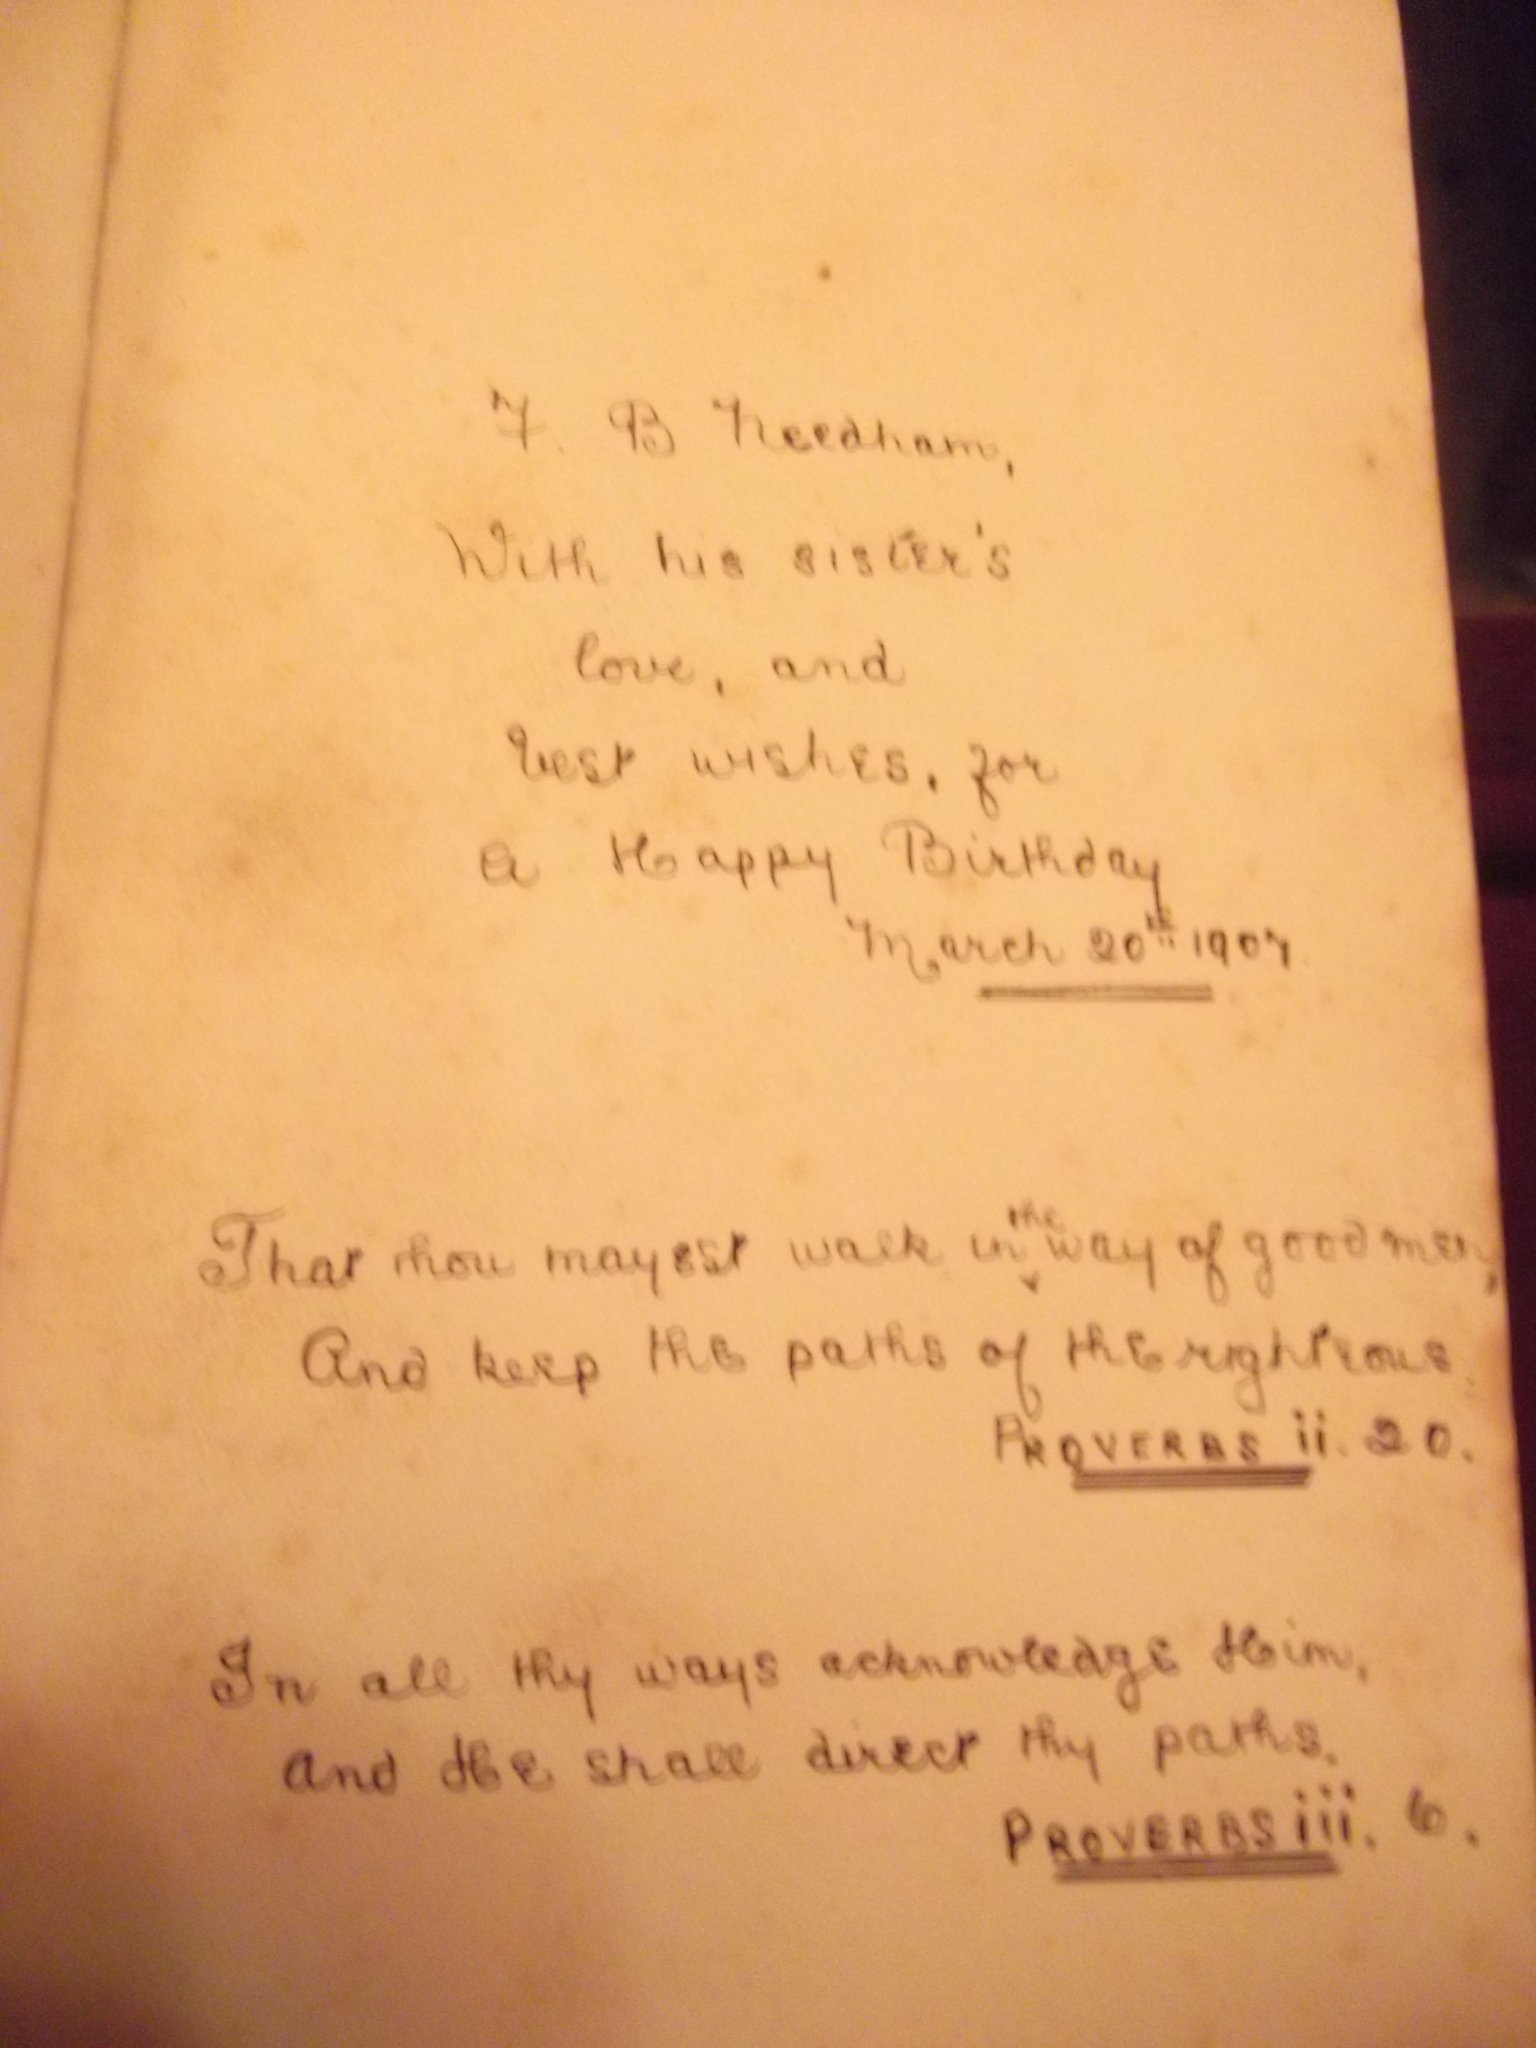 F. B Needham,
With his sister's
love, and
best wishes, for
a Happy Birthday
March 20th 1907
That thou mayest walk in the way of good men,
And keep the paths of the righteous.
PROVERBS ii. 20.
In all thy ways acknowledge Him,
and He shall direct thy paths.
PROVERBS iii. 6.